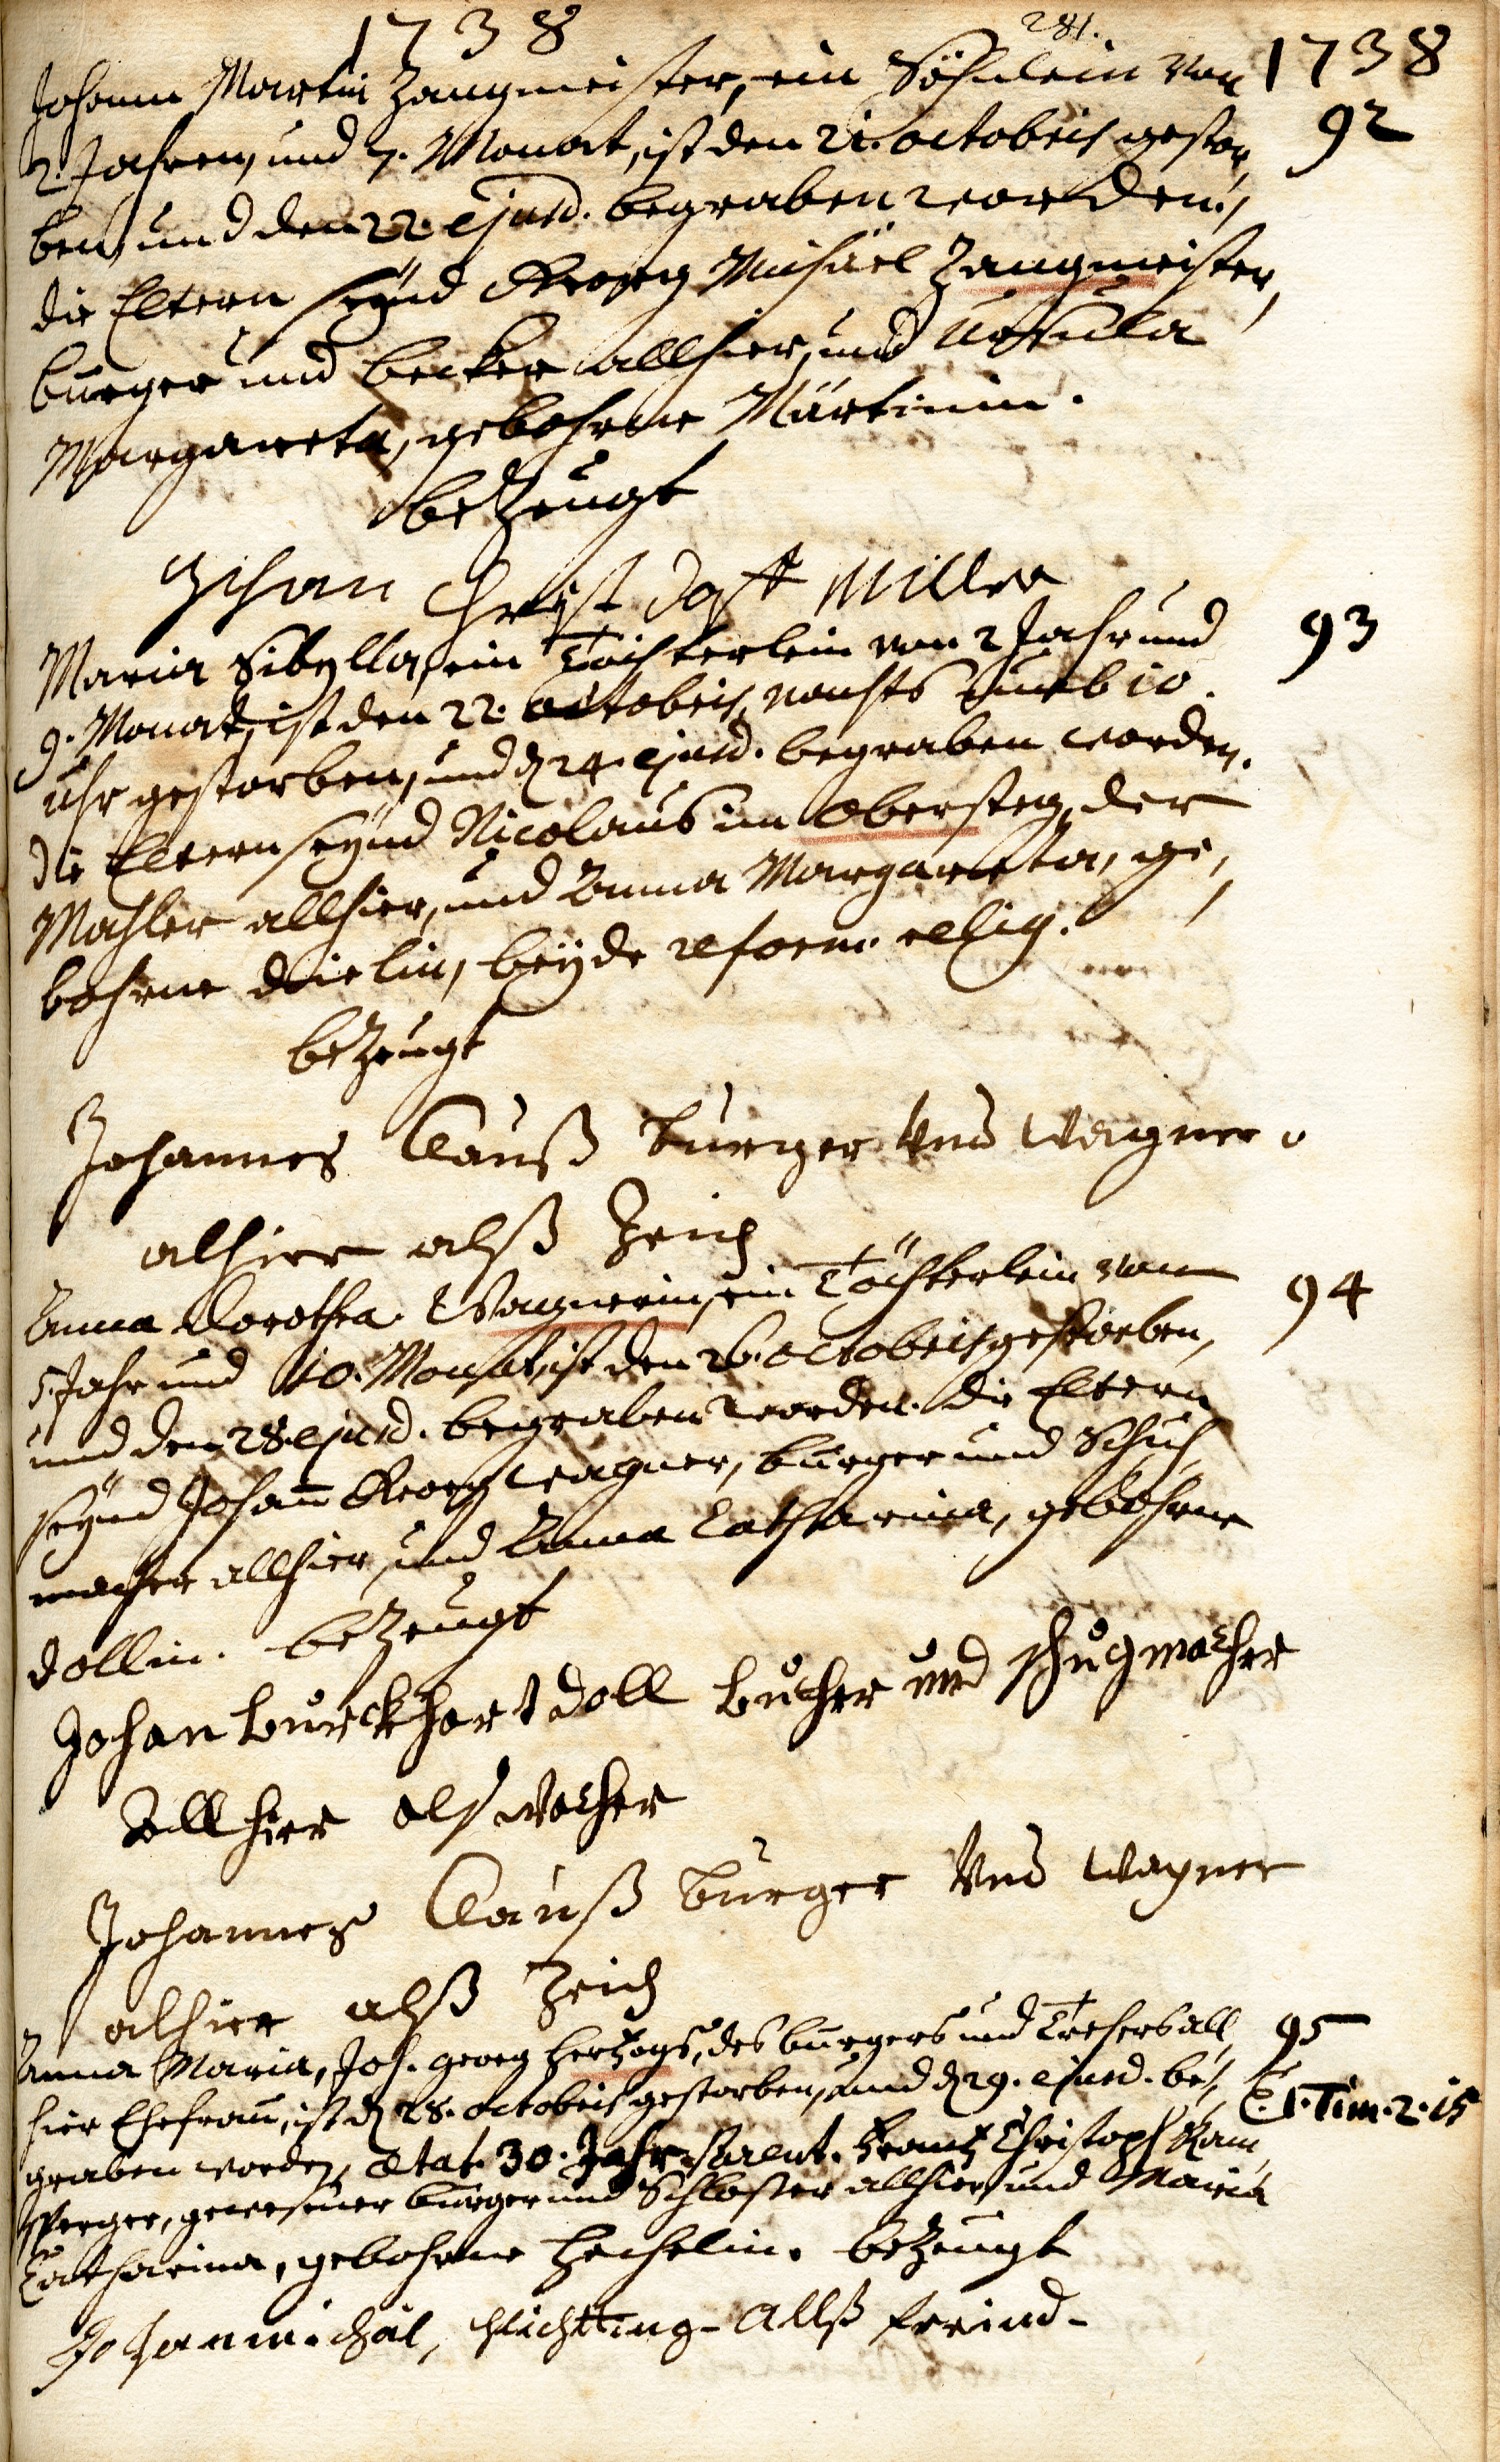 1738
281.
1738
Johann Martin Zangmeister, ein Söhnlein von
92
2. Jahren, und 7. Monat, ist den 21. octobris gestor,
ben, und den 22. ejusd. begraben worden.,
die Eltern seÿnd Georg Michäel Zangmeister,
burger und becker allhier, und Ursula
Margareta, gebohrne Märtinin.
bezeugt
Johan Christ Miller
Maria Sibylla, ein Töchterlein von 2 Jahr und
93
9. Monat, ist den 22. octobris, nachts umb 10.
uhr gestorben, und d. 24. ejusd. begraben worden.
die Eltern seÿnd Nicolaus im Obersteg, der
Mahler allhier, und Anna Margareta, ge,
bohrne dielin, beÿde reform. relig.
bezeugt
Johannes Clauß burger Vnd wagner
alhier alß Zeich
Anna Dorothea Wagnerin, ein Töchterlein von
94
5. Jahr und 10. Monat, ist den 26. octobris gestorben,
und den 28. ejusd. begraben worden. die Eltern
seÿnd Johann Georg Wagner, burger und Schuh,
macher allhier, und Anna Catharina, gebohrne
dollin. bezeugt
Johan burckhart doll und schugmacher
allhier als
Johannes Clauß burger Vnd wagner
alhier alß Zeich
Anna Maria, Joh. Georg Hertzogs, des burgers und all,
95
hier Ehefrau, ist d. 28. octobris gestorben, und d. 29. ejusd. be,
1. Tim. 2. 15
graben worden, ætat. 30. Jahr. Parent. Frantz Christoph Ram,
sperger, gewesener burger und Schlosser allhier, und Maria
Catharina, gebohrne Hechelin. bezeugt
Johanmichäl, schlichtting - Allß freind -